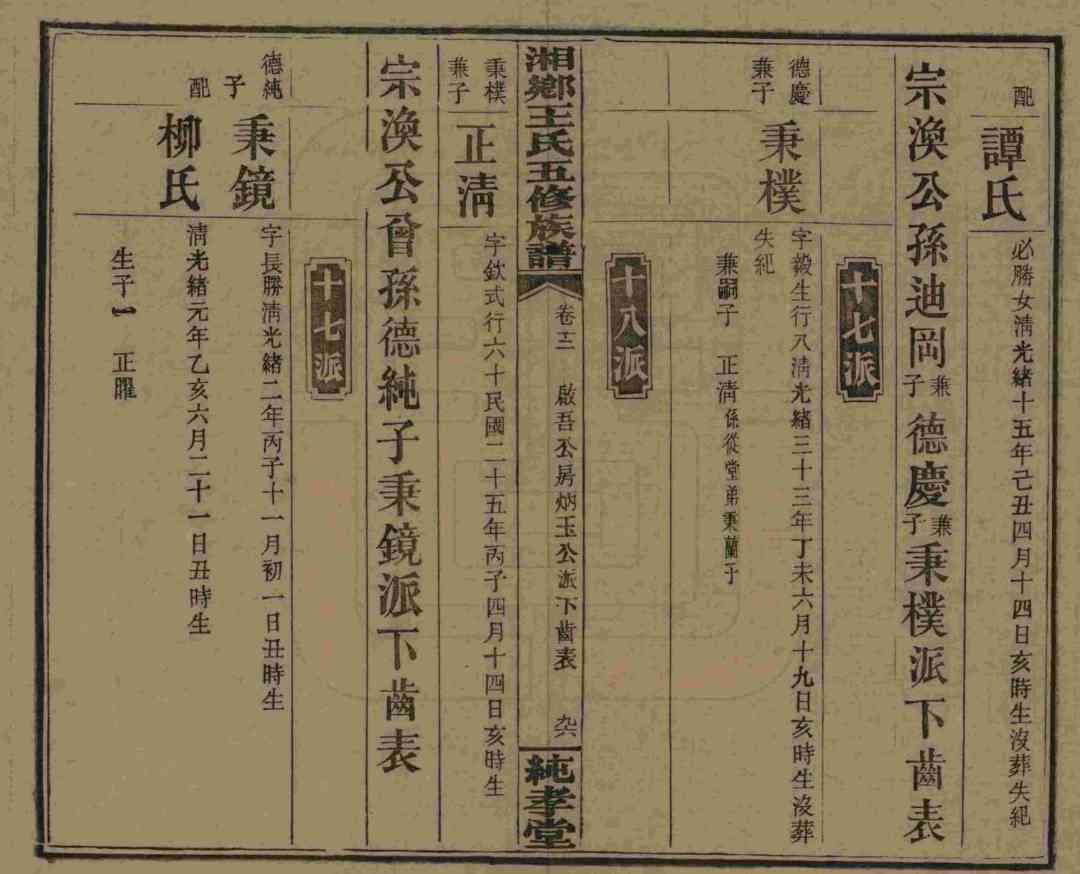 配
譚氏
必勝女清光緒十五年己丑四月十四日亥時生沒葬失紀
宗渙公孫迪岡兼子德慶兼子秉樸派下齒表
十七派
德慶兼子
秉樸
字毅生行八清光緒三十三年丁未六月十九日亥時生沒葬
失紀
兼嗣子 正清係從堂弟秉蘭子
十八派
湘鄉王氏五修族譜
卷十三 啟吾公房炳玉公派下齒表
純孝堂
秉樸兼子
正清
字欽式行六十民國二十五年丙子四月十四日亥時生
宗渙公曾孫德純子秉鏡派下齒表
十七派
德純子
秉鏡
字長勝清光緒二年丙子十一月初一日丑時生
配
柳氏
清光緒元年乙亥六月二十一日丑時生
生子一 正躍